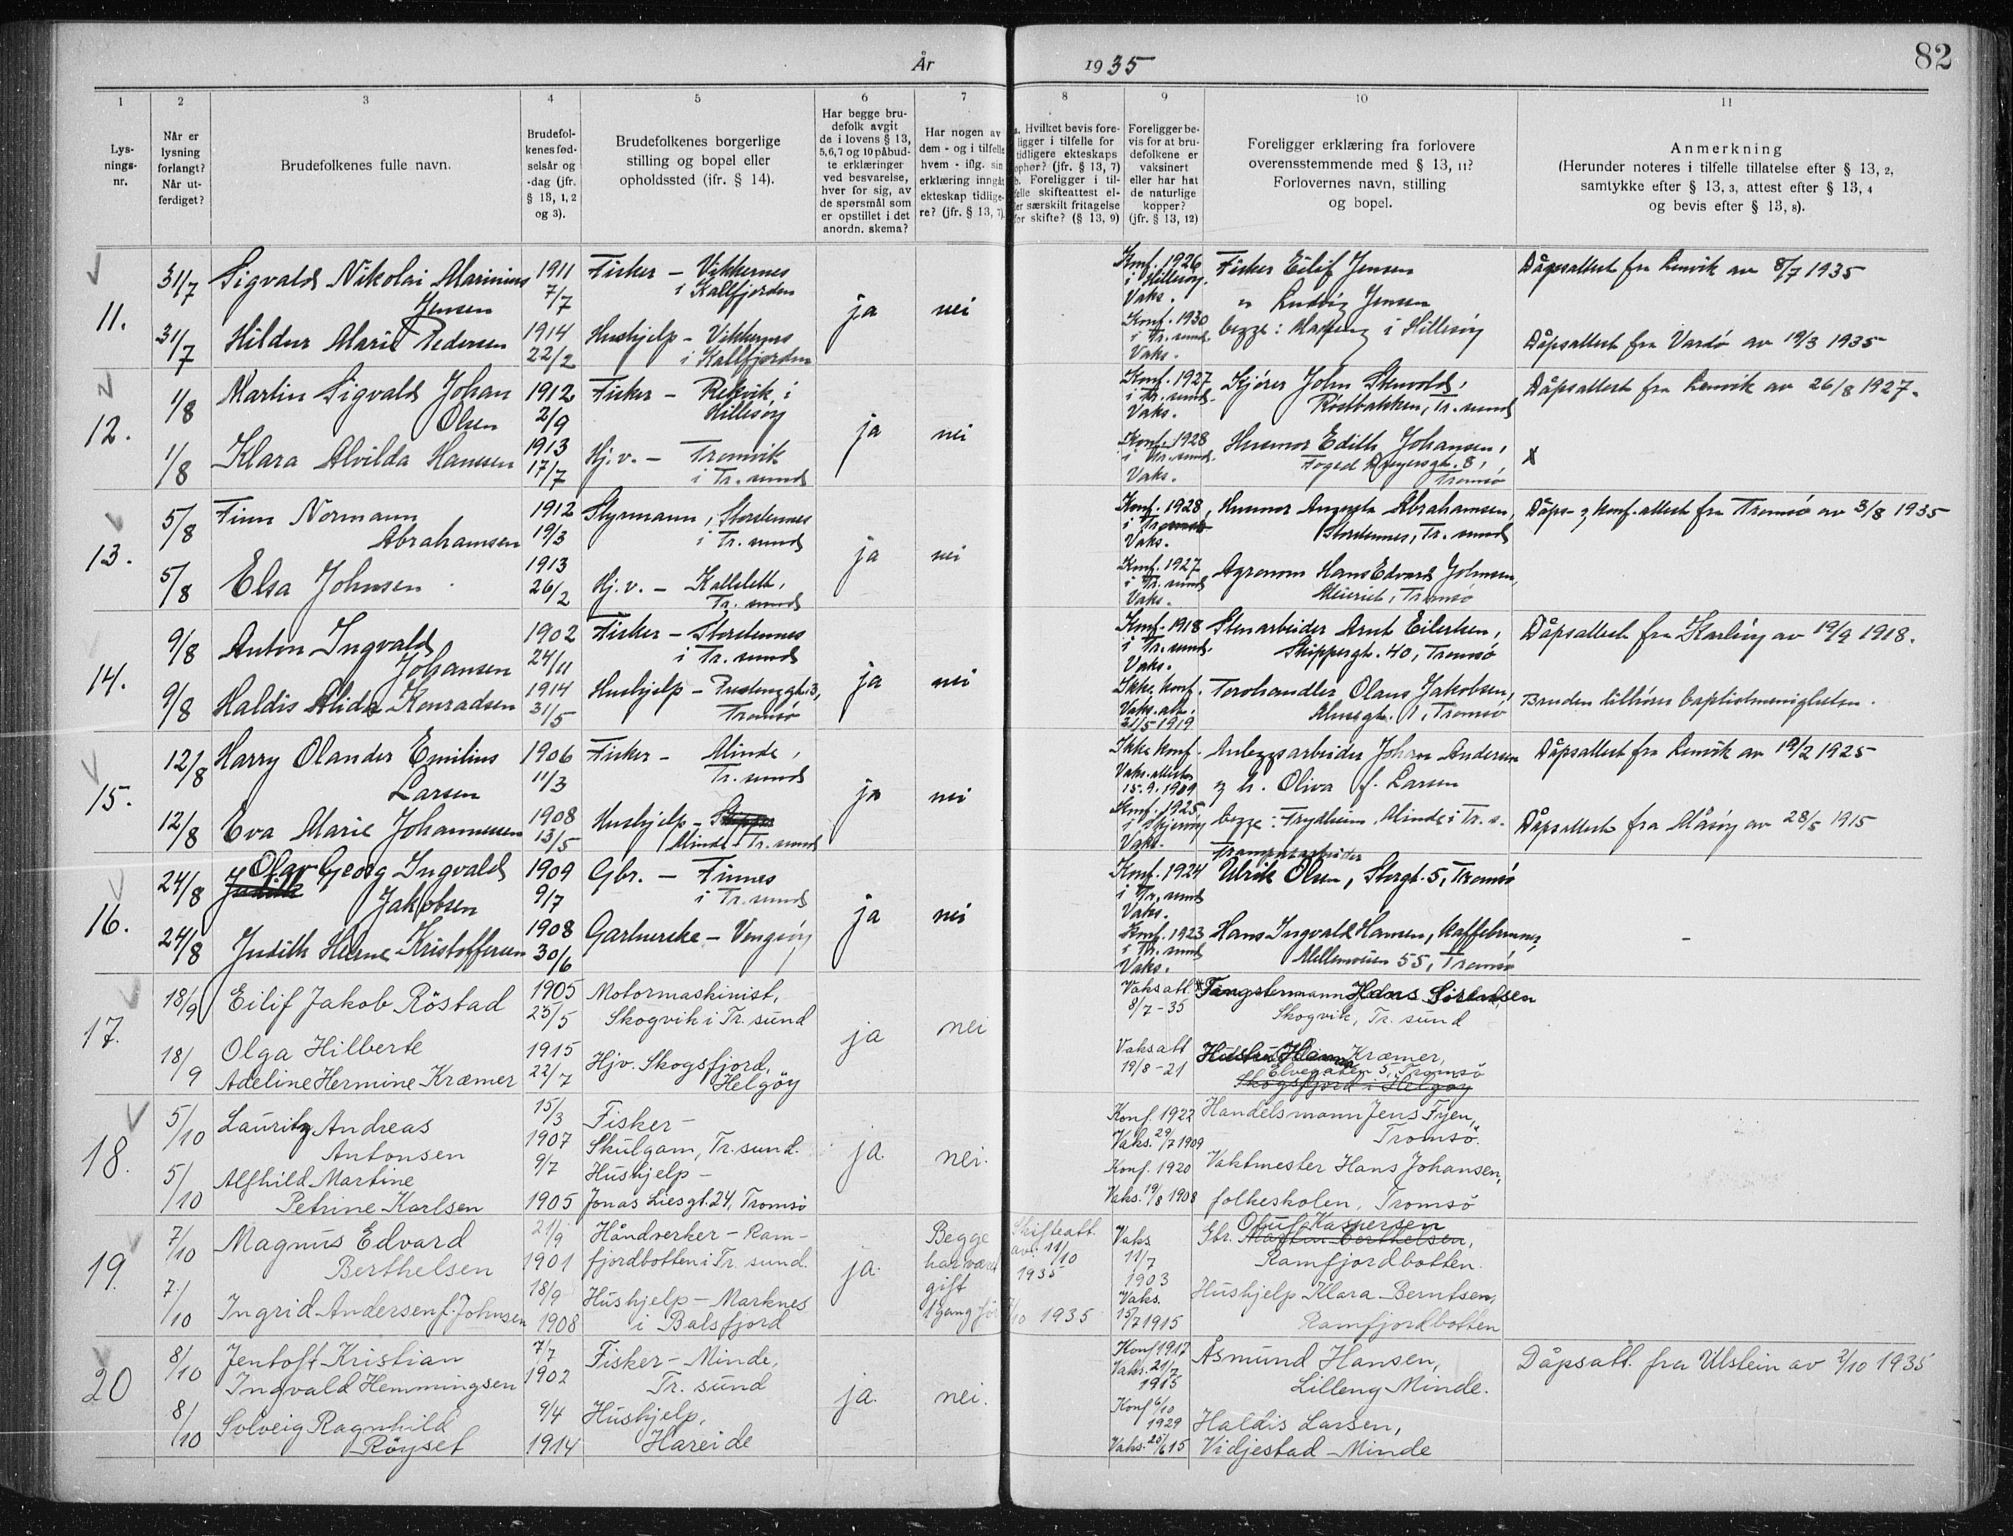 År 1935
82
1 2 3 4 5 6 7 8 9 10 11
Lysningsnr.
Når er lysning forlangt? Når utferdiget?
Brudefolkenes fulle navn.
Brudefolkenes fødselsår og -dag (jfr. § 13, 1, 2 og 3).
Brudefolkenes borgerlige stilling og bopel eller opholdssted (jfr. § 14).
Har begge brudefolk avgit de i lovens § 13, 5, 6, 7 og 10 påbudte erklæringer ved besvarelse, hver for sig, av de spørsmål som er opstillet i det anordn. skema?
Har nogen av dem - og i tilfelle hvem - iflg. sin erklæring inngått ekteskap tidligere? (jfr. § 13, 7).
a. Hvilket bevis foreligger i tilfelle for tidligere ekteskaps ophør? (jfr. § 13, 7) b. Foreligger i tilfelle skifteattest eller særskilt fritagelse for skifte? (§ 13, 9)
Foreligger bevis for at brudefolkene er vaksinert eller har hat de naturlige kopper? (jfr. § 13, 12)
Foreligger erklæring fra forlovere overensstemmende med § 13, 11? Forlovernes navn, stilling og bopel.
Anmerkning (Herunder noteres i tilfelle tillatelse efter § 13, 2, samtykke efter § 13, 3, attest efter § 13, 4 og bevis efter § 13, 8).
11.
31/7 Sigvald Nikolai Marinius Jensen 1911 7/7 Fisker - Vikkernes i Kallfjorden ja nei Konf. 1926 i Hillesøy. Vaks. Fisker Eilif Jensen Dåpsattest fra Lenvik av 8/7 1935
31/7 Hildur Marie Pedersen 1914 22/2 Hushjelp - Vikkernes i Kallfjorden Konf. 1930 i Tr. sund. Vaks. " Ludvig Jensen begge: i Hillesøy Dåpsattest fra Vardø av 19/3 1935
12.
1/8 Martin Sigvald Johan Olsen 1912 2/9 Fisker - Rekvik i Hillesøy ja nei Konf. 1927 i Tr. sund. Vaks. Kjører John Stenvold, Rødbakken, Tr. sund Dåpsattest fra Lenvik av 26/8 1927.
1/8 Klara Alvilda Hansen 1913 17/7 Hj.v. - Tromvik i Tr. sund Konf. 1928 i Tr. sund. Vaks. Husmor Edith Johansen, Foged Dreyersgt. 8, Tromsø x
13.
5/8 Finn Normann Abrahamsen 1912 19/3 Styrmann, Storstennes i Tr. sund ja nei Konf. 1928 i Tromsø Vaks. Husmor Augusta Abrahamsen, Storstennes, Tr. sund Dåps- og konf.-attest fra Tromsø av 3/8 1935
5/8 Elsa Johnsen 1913 26/2 Hj.v. - Kallelett, Tr. sund Konf. 1927 i Tr. sund Vaks. Agronom Hans Edvard Johnsen, Meieriet, Tromsø
14.
9/8 Anton Ingvald Johansen 1902 24/11 Fisker - Storstennes i Tr. sund ja nei Konf. 1918 i Tr. sund. Vaks. Stenarbeider Arnt Eilertsen, Skippergt. 40, Tromsø Dåpsattest fra Karlsøy av 19/9 1918.
9/8 Haldis Alida Konradsen 1914 31/5 Hushjelp - Prestenggt. 3, Tromsø Ikke konf. Vaks. att. 31/5 1919 Torvhandler Olaus Jakobsen, 1, Tromsø Bruden tilhører baptistmenigheten.
15.
12/8 Harry Olander Emilius Larsen 1906 11/3 Fisker - Minde, Tr. sund ja nei Ikke konf. Vaks. attest 15.9.1909 Anleggsarbeider Johan Andersen Dåpsattest fra Lenvik av 19/2 1925
12/8 Eva Marie Johannessen 1908 13/5 Hushjelp - Minde i Tr. sund Konf. 1925 i Skjervøy Vaks. og h. Oliva f. Larsen begge: Frydheim, Minde i Tr. s. Dåpsattest fra Måsøy av 28/5 1915
16.
24/8 Judith Olav Georg Ingvald Jakobsen 1909 9/7 Gbr. - Finnes i Tr. sund ja nei Konf. 1924 i Tr. sund Vaks. Ulrik Olsen, Storgt. 5, Tromsø
24/8 Judith Helene Kristoffersen 1908 30/6 Gartnerske - Vengsøy Konf. 1923 i Tr. sund Vaks. Hans Ingvald Hansen, kaffebrenner, Mellemveien 55, Tromsø -
17.
18/9 Eilif Jakob Röstad 1905 25/5 Motormaskinist, Skogvik i Tr. sund ja nei Vaksatt. 8/7-35 Fangstermann Hans Sörensen Skogvik, Tr. sund
18/9 Olga Hilberte Adeline Hermine Kræmer 1915 22/7 Hjv. Skogsfjord, Helgöy Vaksatt 19/8-21 Hustru Hanna Kræmer, Elvegaten 5, Tromsö Skogsfjord i Helgöy
18.
5/10 Lauritz Andreas Antonsen 15/3 1907 Fisker - Skulgam, Tr. sund. ja. nei. Konf. 1922 Vaks. 29/7 1909 Handelsmann Jens Fyen, Tromsö.
5/10 Alfhild Martine Petrine Karlsen 9/7 1905 Hushjelp - Jonas Liesgt. 24, Tromsö Konf. 1920 Vaks. 19/8 1908 Vaktmester Hans Johansen, folkeskolen, Tromsö
19.
7/10 Magnus Edvard Berthelsen 21/9 1901 Håndverker - Ramfjordbotten i Tr. sund. ja. Begge har været gift 1 gang før Skifteatt. av 11/10 1935 Vaks 11/7 1903 Gbr. Martin Berthelsen, Oluf Kaspersen Ramfjordbotten.
7/10 Ingrid Andersen f. Johnsen 18/9 1908 Hushjelp - Marknes i Balsfjord 7/10 1935 Vaks. 15/7 1915 Hushjelp Klara Berntsen, Ramfjordbotten
20
8/10 Jentoft Kristian Ingvald Hemmingsen 7/7 1902 Fisker - Minde, Tr. sund ja. nei. Konf 1917 Vaks. 21/7 1915 Åsmund Hansen, Lilleng Minde. Dåpsatt. fra Ulstein av 2/10 1935
8/10 Solveig Ragnhild Röyset 9/4 1914 Hushjelp, Hareide Konf 6/10 1929 Vaks. 25/6 15 Haldis Larsen, Vidjestad - Minde